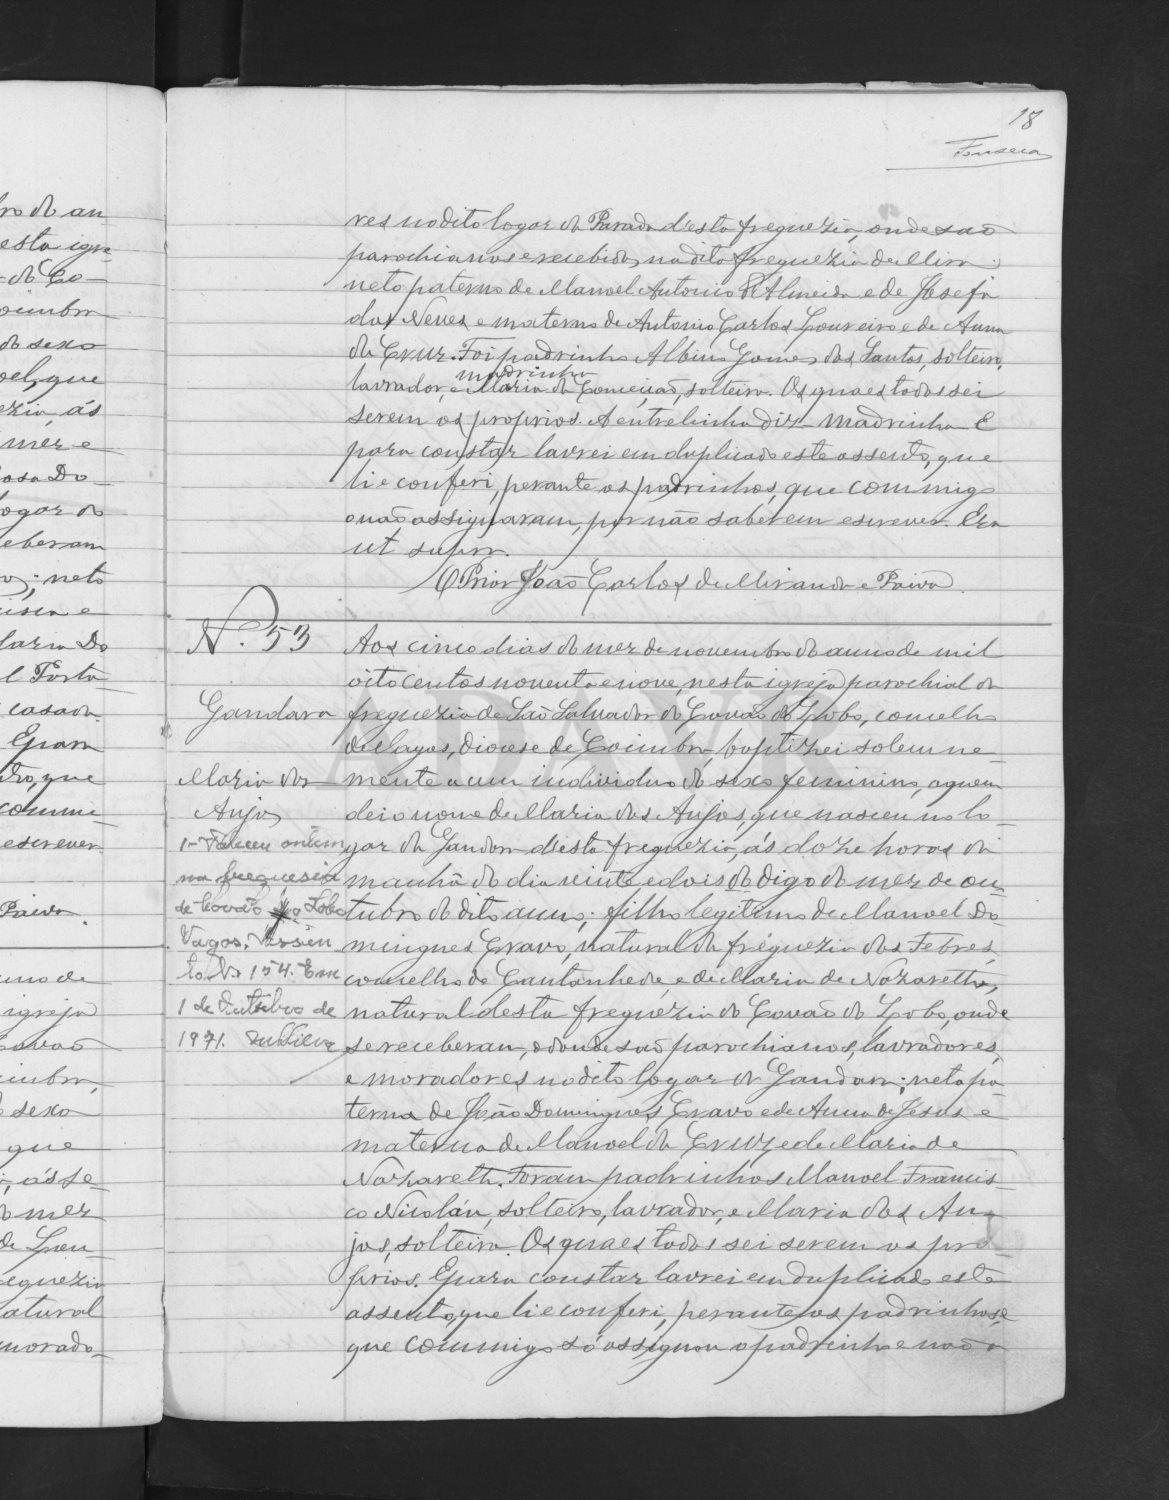 18
Fonseca
res no dito logar da Parada d'esta freguezia, onde são
parochianos e recebidos na dita freguezia de Mira;
neto paterno de Manoel Antonio d'Almeida e de Josefa
das Neves e materno de Antonio Carlos Loureiro e de Anna
da Cruz. Foi padrinho Albino Gomes dos Santos, solteiro,
madrinha
lavrador, e Maria da Conceição, solteira. Os quaes todos sei
serem os proprios. A entrelinha diz - madrinha - E
para constar lavrei em duplicado este assento, que
li e conferi, perante os padrinhos, que commigo
o não assignaram, por não saberem escrever. Era
ut supra.
O Prior João Carlos de Miranda e Paiva.
N.º 53
Gandara
Maria dos
Anjos
1- Faleceu ontem
na freguesia
de Covão do Lobo
Vagos. Assen
to Nº 154. Em
1 de Outubro de
1971.
Aos cinco dias do mez de novembro do anno de mil
oitocentos noventa e nove, nesta igreja parochial da
freguezia de São Salvador do Covão do Lobo, concelho
de Vagos, diocese de Coimbra, baptizei solemne-
mente a um individuo do sexo feminino, a quem
dei o nome de Maria dos Anjos, que nasceu no lo-
gar da Gandara d'esta freguezia, ás doze horas da
manhã do dia vinte e dois do digo do mez de ou-
tubro do dito anno; filha legitima de Manoel Do-
mingues Cravo, natural da freguezia das Febres,
concelho de Cantanhede, e de Maria de Nazareth,
natural desta freguezia do Covão do Lobo, onde
se receberam, e donde são parochianos, lavradores,
e moradores no dito logar da Gandara; neta pa-
terna de João Domingues Cravo e de Anna de Jesus e
materna de Manoel da Cruz e de Maria de
Nazareth. Foram padrinhos Manoel Francis-
co Nicolau, solteiro, lavrador, e Maria dos An-
jos, solteira. Os quaes todos sei serem os pro-
prios. E para constar lavrei em duplicado este
assento, que li e conferi, perante os padrinhos,
que commigo só assignou o padrinho e não a